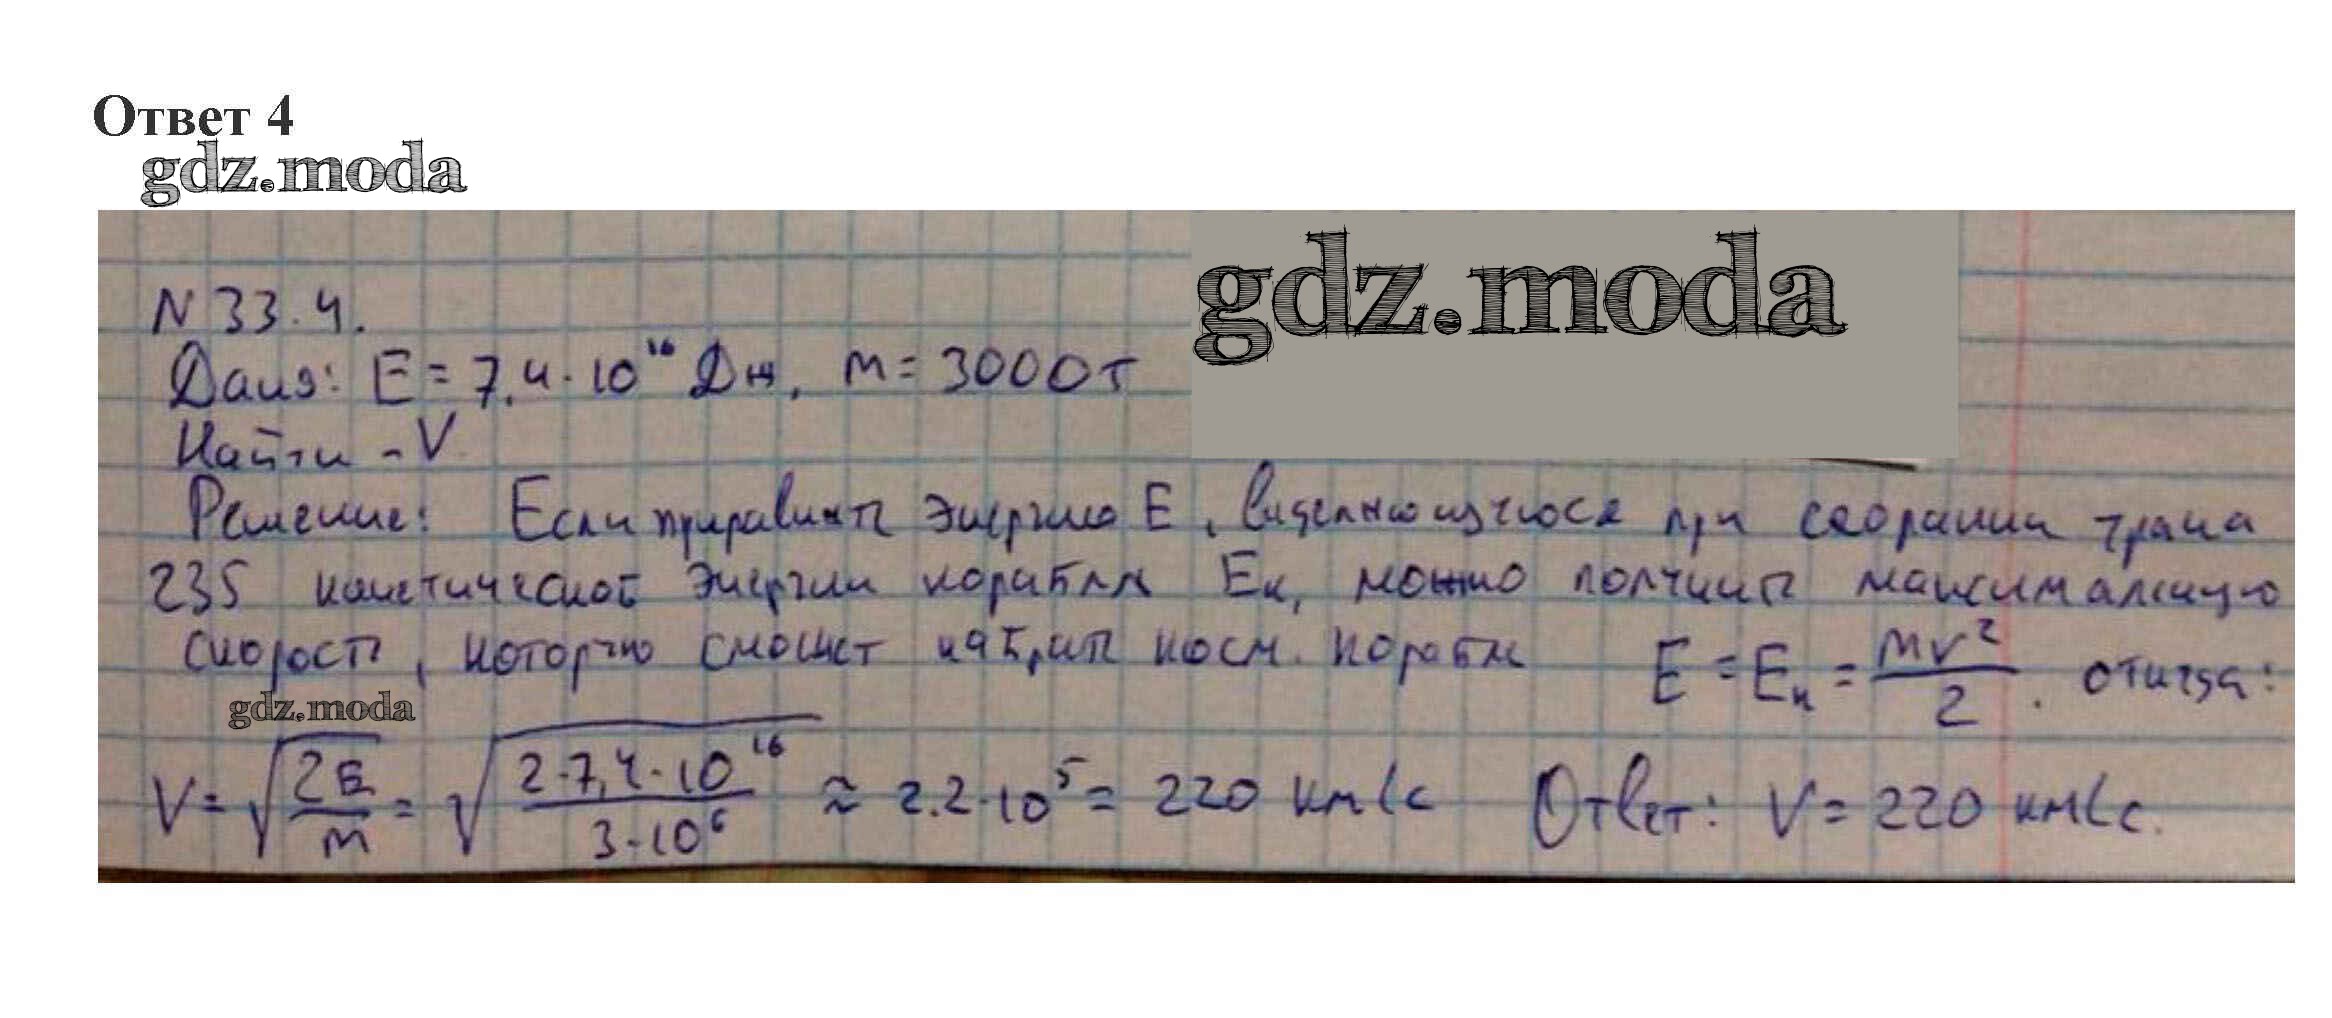 Ответ 4
gdz.moda
gdz.moda
N 33.4.
Дано: E = 7,4·10¹⁶ Дж, m = 3000 т
Найти - V
Решение: Если приравнять энергию E, выделяющуюся при сгорании грана
235 кинетической энергии корабля Eк, можно получить максимальную
скорость, которую сможет набрать косм. корабль E = Eк = mv²/2. откуда:
gdz.moda
V = √(2E/m) = √(2·7,4·10¹⁶/3·10⁶) ≈ 2.2·10⁵ = 220 км/с Ответ: V = 220 км/с.